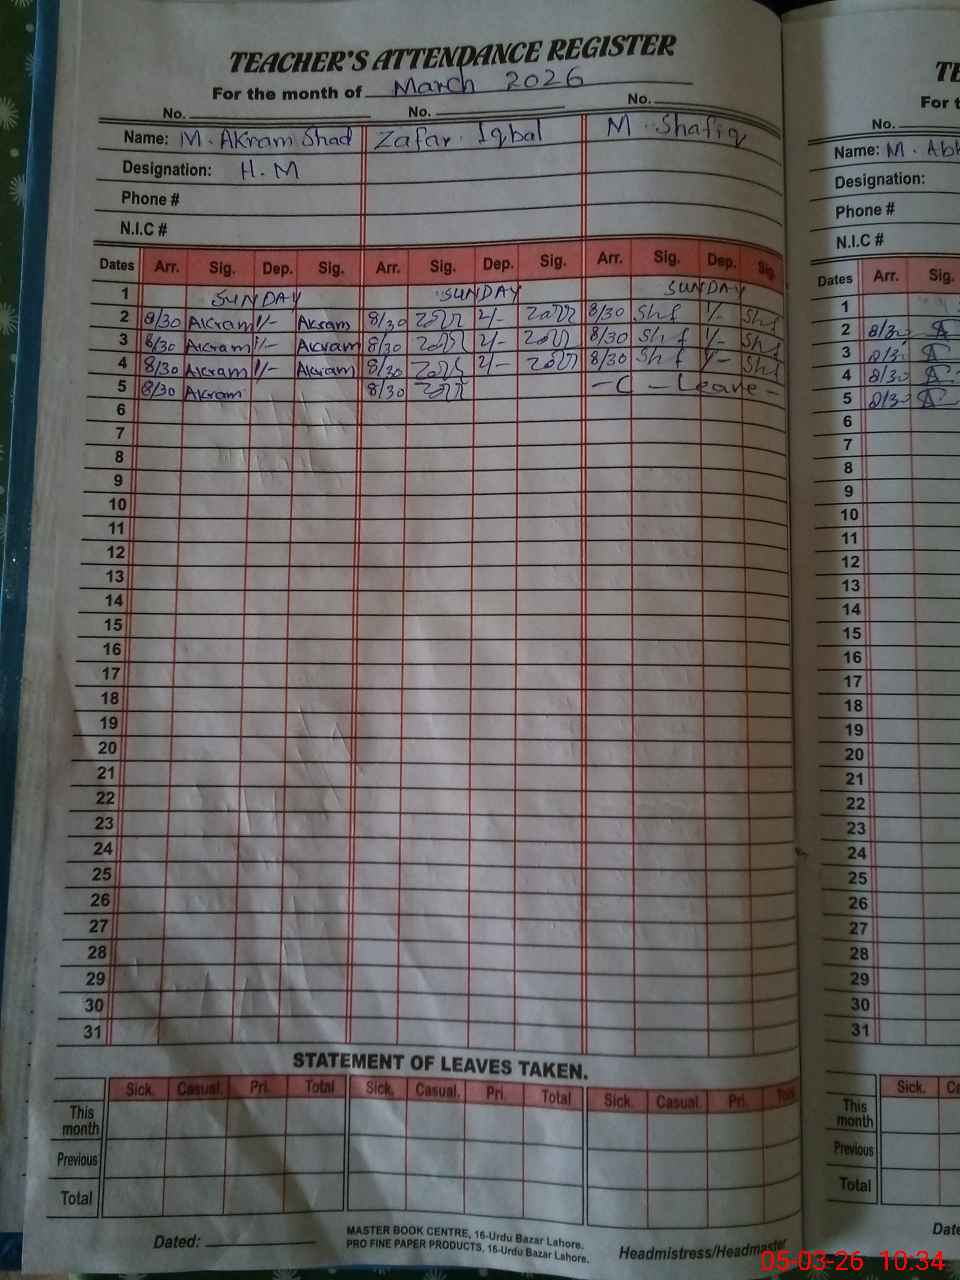 TEACHER'S ATTENDANCE REGISTER
For the month of March 2026
No. No. No.
Name: M. Akram Shad Zafar Iqbal M. Shafiq
Designation: H.M
Phone #
N.I.C #
Dates Arr. Sig. Dep. Sig. Arr. Sig. Dep. Sig. Arr. Sig. Dep. Sig.
1 SUNDAY SUNDAY SUNDAY
2 8/30 Akram 1/- Akram 8/30 2/- 8/30 Shf 1/- Shf
3 8/30 Akram 1/- Akram 8/30 2/- 8/30 Shf 1/- Shf
4 8/30 Akram 1/- Akram 8/30 2/- 8/30 Shf 1/- Shf
5 8/30 Akram 8/30 - C - Leave -
6
7
8
9
10
11
12
13
14
15
16
17
18
19
20
21
22
23
24
25
26
27
28
29
30
31
STATEMENT OF LEAVES TAKEN.
Sick. Casual. Pri. Total Sick. Casual. Pri. Total Sick. Casual. Pri. Total
This month
Previous
Total
Dated:
MASTER BOOK CENTRE, 16-Urdu Bazar Lahore.
PRO FINE PAPER PRODUCTS, 16-Urdu Bazar Lahore.
Headmistress/Headmaster
TE
For t
No.
Name: M. Ab
Designation:
Phone #
N.I.C #
Dates Arr. Sig.
1
2 8/30
3 8/30
4 8/30
5 8/30
6
7
8
9
10
11
12
13
14
15
16
17
18
19
20
21
22
23
24
25
26
27
28
29
30
31
Sick. Ca
This month
Previous
Total
Date
05-03-26 10:34